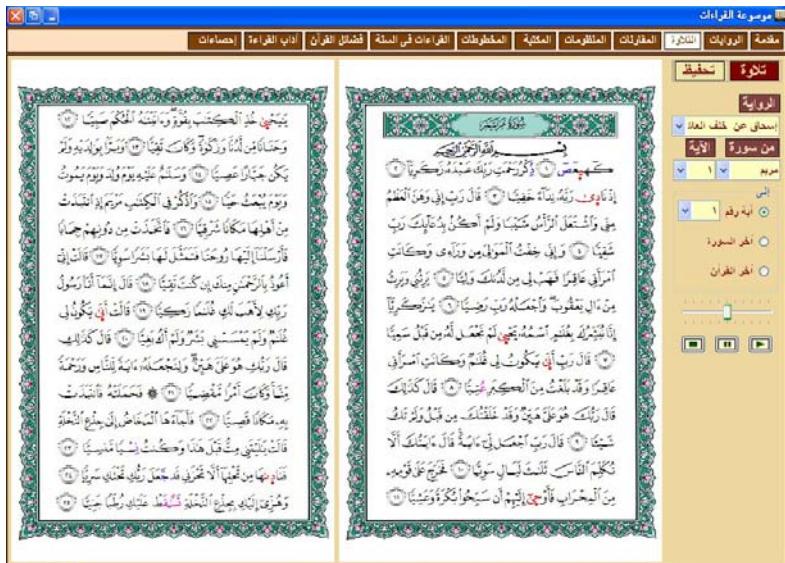 موسوعة القراءات
مقدمة
الروايات
التلاوة
المقارنات
المنظومات
المكتبة
المخطوطات
القراءات في السنة
فضائل القرآن
آداب القراءة
إحصاءات
تلاوة
تحفيظ
الرواية
إسحاق عن خلف العاش
من سورة
الآية
مريم
١
إلى
آية رقم
١
آخر السورة
آخر القرآن
سُورَةُ مَرْيَمَ
بِسْمِ اللَّهِ الرَّحْمَٰنِ الرَّحِيمِ
كهيعص ١ ذِكْرُ رَحْمَتِ رَبِّكَ عَبْدَهُ زَكَرِيَّا ٢
إِذْ نَادَىٰ رَبَّهُ نِدَاءً خَفِيًّا ٣ قَالَ رَبِّ إِنِّي وَهَنَ الْعَظْمُ
مِنِّي وَاشْتَعَلَ الرَّأْسُ شَيْبًا وَلَمْ أَكُنْ بِدُعَائِكَ رَبِّ
شَقِيًّا ٤ وَإِنِّي خِفْتُ الْمَوَالِيَ مِنْ وَرَاءِي وَكَانَتِ
امْرَأَتِي عَاقِرًا فَهَبْ لِي مِنْ لَدُنْكَ وَلِيًّا ٥ يَرِثُنِي وَيَرِثُ
مِنْ ءَالِ يَعْقُوبَ وَاجْعَلْهُ رَبِّ رَضِيًّا ٦ يَٰزَكَرِيَّا
إِنَّا نُبَشِّرُكَ بِغُلَٰمٍ اسْمُهُ يَحْيَىٰ لَمْ نَجْعَلْ لَهُ مِنْ قَبْلُ سَمِيًّا
٧ قَالَ رَبِّ أَنَّىٰ يَكُونُ لِي غُلَٰمٌ وَكَانَتِ امْرَأَتِي
عَاقِرًا وَقَدْ بَلَغْتُ مِنَ الْكِبَرِ عُتِيًّا ٨ قَالَ كَذَٰلِكَ
قَالَ رَبُّكَ هُوَ عَلَيَّ هَيِّنٌ وَقَدْ خَلَقْتُكَ مِنْ قَبْلُ وَلَمْ تَكُ
شَيْئًا ٩ قَالَ رَبِّ اجْعَلْ لِي ءَايَةً قَالَ ءَايَتُكَ أَلَّا
تُكَلِّمَ النَّاسَ ثَلَٰثَ لَيَالٍ سَوِيًّا ١٠ فَخَرَجَ عَلَىٰ قَوْمِهِ
مِنَ الْمِحْرَابِ فَأَوْحَىٰ إِلَيْهِمْ أَنْ سَبِّحُوا بُكْرَةً وَعَشِيًّا ١١
يَٰيَحْيَىٰ خُذِ الْكِتَٰبَ بِقُوَّةٍ وَءَاتَيْنَٰهُ الْحُكْمَ صَبِيًّا ١٢
وَحَنَانًا مِنْ لَدُنَّا وَزَكَوٰةً وَكَانَ تَقِيًّا ١٣ وَبَرًّا بِوَٰلِدَيْهِ وَلَمْ
يَكُنْ جَبَّارًا عَصِيًّا ١٤ وَسَلَٰمٌ عَلَيْهِ يَوْمَ وُلِدَ وَيَوْمَ يَمُوتُ
وَيَوْمَ يُبْعَثُ حَيًّا ١٥ وَاذْكُرْ فِي الْكِتَٰبِ مَرْيَمَ إِذِ انْتَبَذَتْ
مِنْ أَهْلِهَا مَكَانًا شَرْقِيًّا ١٦ فَاتَّخَذَتْ مِنْ دُونِهِمْ حِجَابًا
فَأَرْسَلْنَا إِلَيْهَا رُوحَنَا فَتَمَثَّلَ لَهَا بَشَرًا سَوِيًّا ١٧ قَالَتْ إِنِّي
أَعُوذُ بِالرَّحْمَٰنِ مِنْكَ إِنْ كُنْتَ تَقِيًّا ١٨ قَالَ إِنَّمَا أَنَا رَسُولُ
رَبِّكِ لِأَهَبَ لَكِ غُلَٰمًا زَكِيًّا ١٩ قَالَتْ أَنَّىٰ يَكُونُ لِي
غُلَٰمٌ وَلَمْ يَمْسَسْنِي بَشَرٌ وَلَمْ أَكُ بَغِيًّا ٢٠ قَالَ كَذَٰلِكِ
قَالَ رَبُّكِ هُوَ عَلَيَّ هَيِّنٌ وَلِنَجْعَلَهُ ءَايَةً لِلنَّاسِ وَرَحْمَةً
مِنَّا وَكَانَ أَمْرًا مَقْضِيًّا ٢١ ۞ فَحَمَلَتْهُ فَانْتَبَذَتْ
بِهِ مَكَانًا قَصِيًّا ٢٢ فَأَجَاءَهَا الْمَخَاضُ إِلَىٰ جِذْعِ النَّخْلَةِ
قَالَتْ يَٰلَيْتَنِي مِتُّ قَبْلَ هَٰذَا وَكُنْتُ نِسْيًا مَنْسِيًّا ٢٣
فَنَادَىٰهَا مِنْ تَحْتِهَا أَلَّا تَحْزَنِي قَدْ جَعَلَ رَبُّكِ تَحْتَكِ سَرِيًّا ٢٤
وَهُزِّي إِلَيْكِ بِجِذْعِ النَّخْلَةِ تَسَّٰقَطْ عَلَيْكِ رُطَبًا جَنِيًّا ٢٥